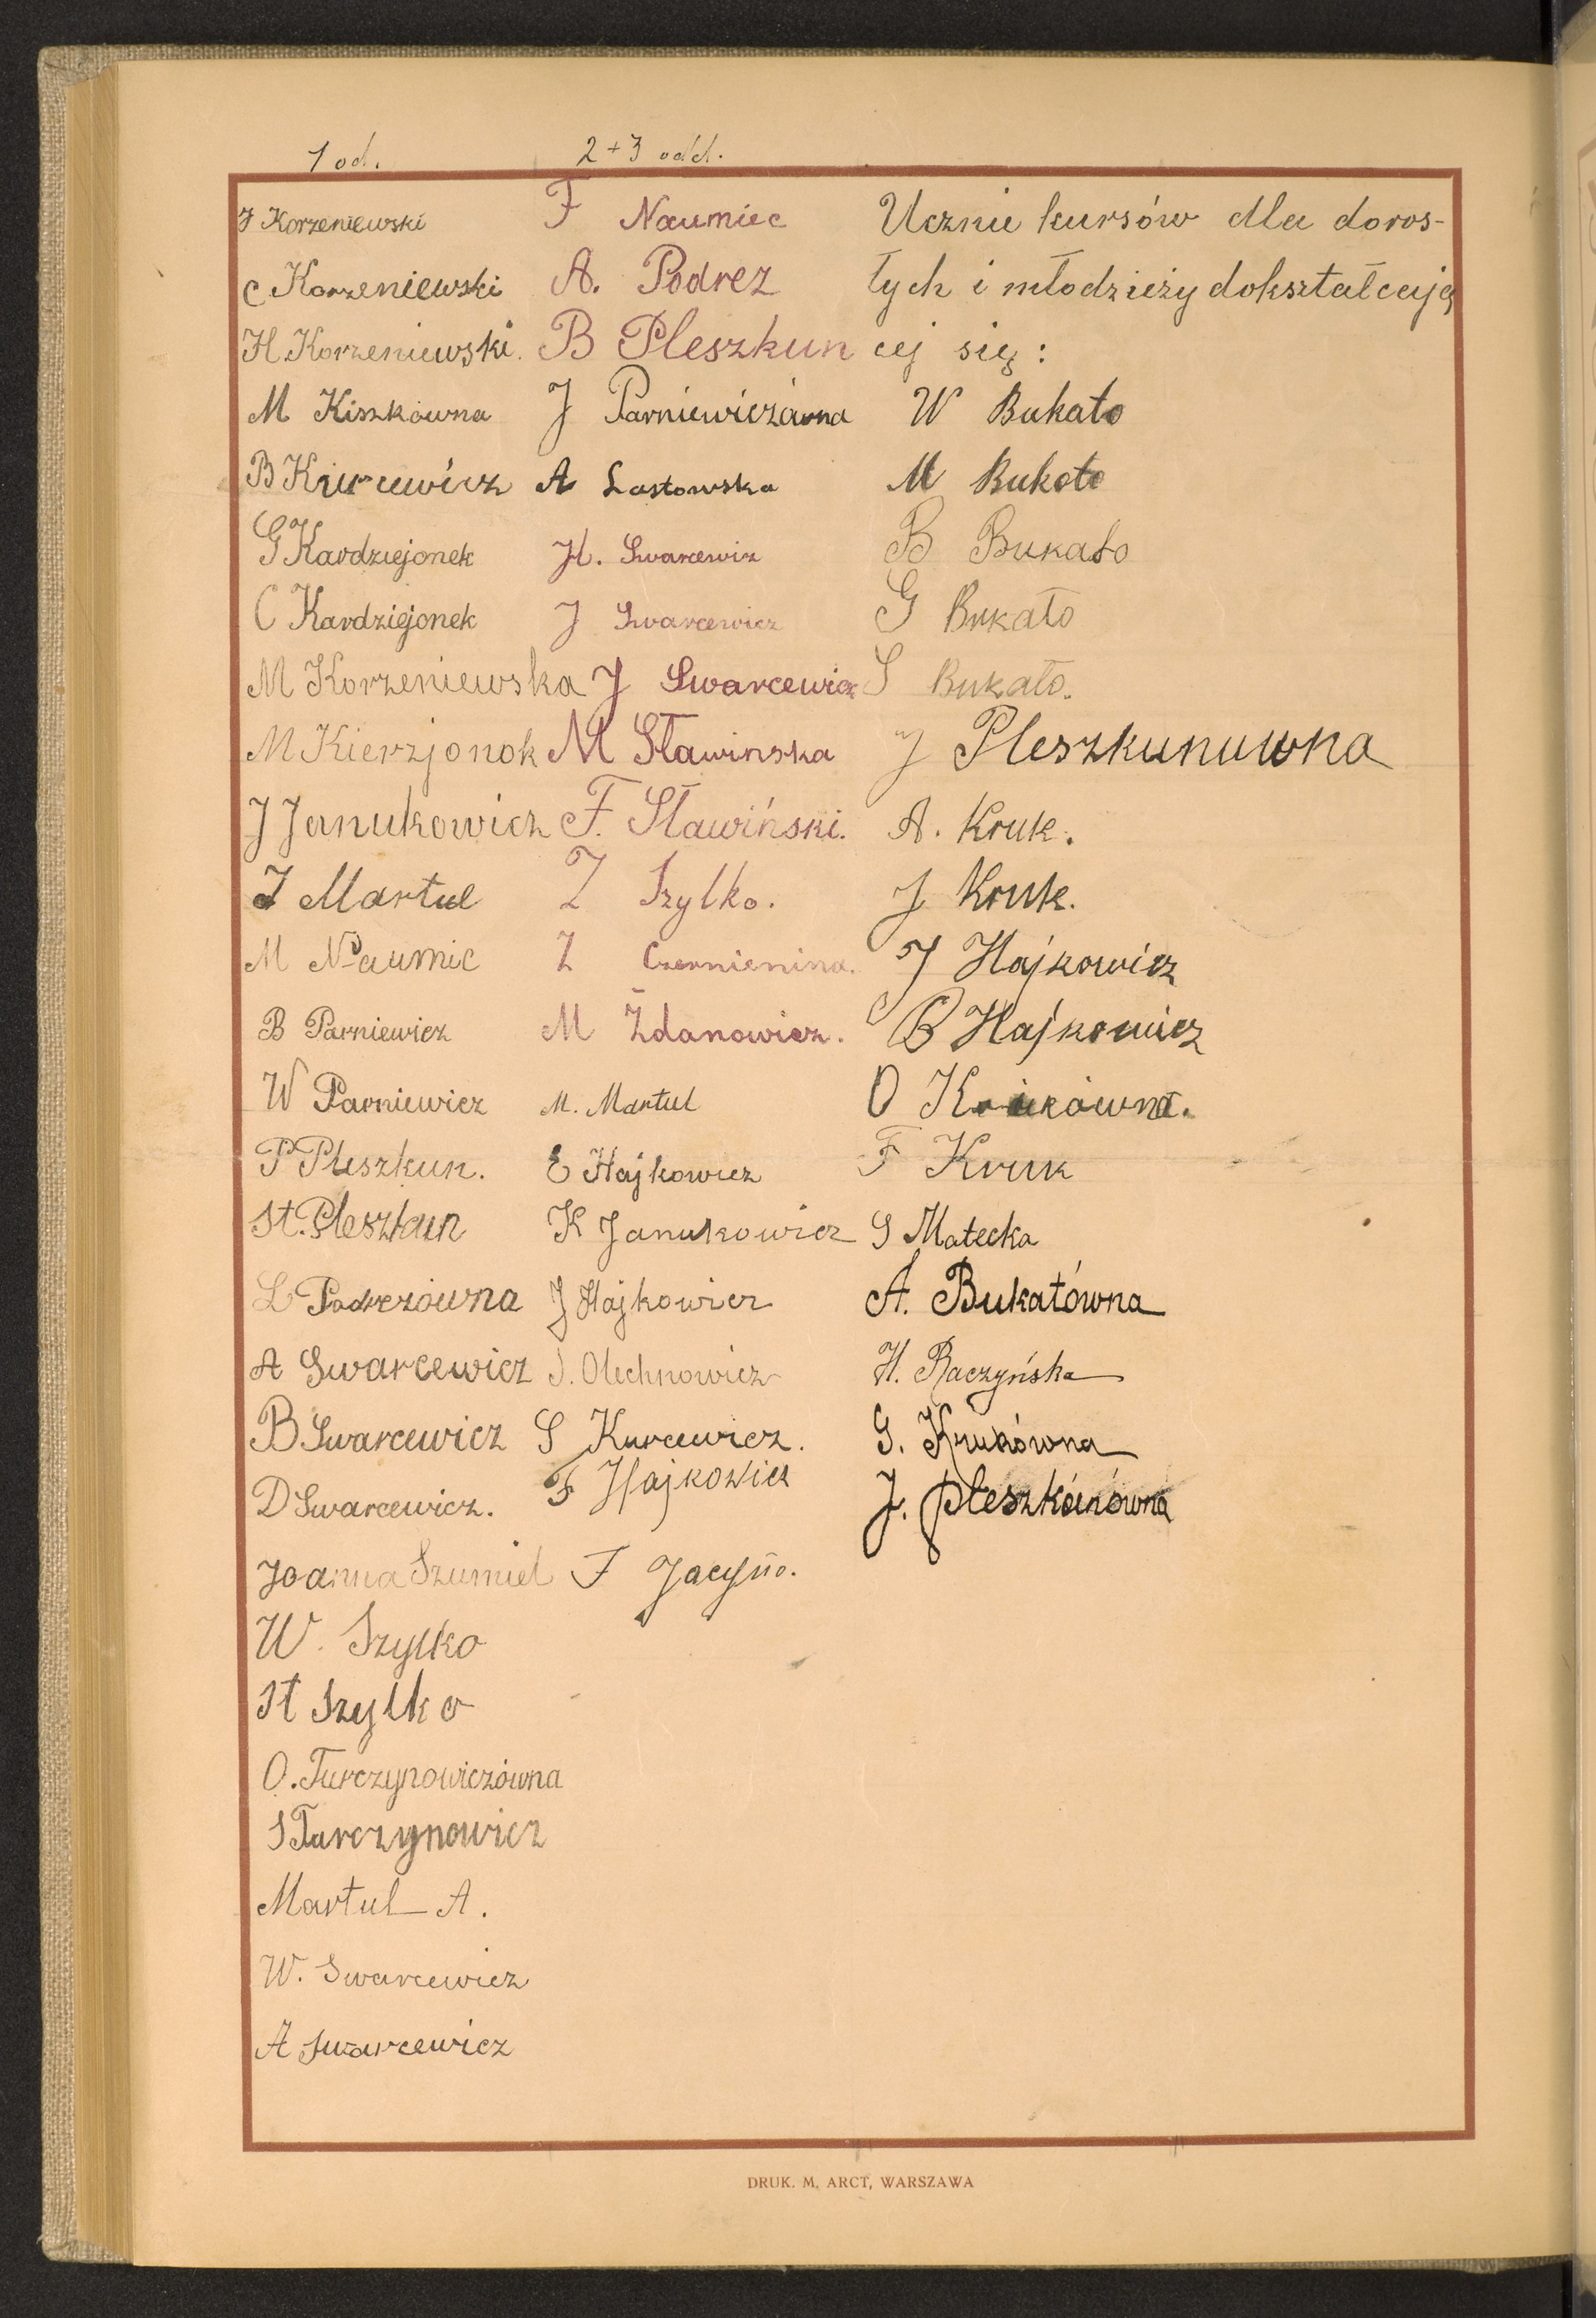 1 od.
J Korzeniewski
C Korzeniewski
H Korzeniewski.
M Kiszkowna
B Kurcewicz
G Kardziejonek
C Kardziejonek
M Korzeniewska
M Kierzjonok
J Janukowicz
J Martul
M Naumic
B Parniewicz
W Parniewicz
P Pleszkun.
St. Pleszkun
L Podrezówna
A Swarcewicz
B Swarcewicz
D Swarcewicz.
Joanna Szumiel
W. Szylko
St Szylko
O. Turczynowiczówna
S Turczynowicz
Martul A.
W. Swarcewicz
A Swarcewicz
2 + 3 odd.
F Naumiec
A. Podrez
B Pleszkun
J Parniewiczówna
A Lastowska
H. Swarcewicz
J Swarcewicz
J Swarcewicz
M Sławinska
F. Sławiński.
Z Szylko.
Z Czernienina.
M Żdanowicz.
M. Martul
E Hajkowicz
K Janukowicz
J Hajkowicz
J. Olechnowicz
S Kurcewicz.
F Hajkowicz
F Jacyno.
Ucznie kursów dla doros-
łych i młodzieży dokształcają
cej się:
W Bukato
M Bukoto
B Bukato
G Bukało
S Bukało.
J Pleszkunuwna
A. Kruk.
J Kruk.
J Hajkowicz
B Hajkowicz
O Krukówna.
F Kruk
S Matecka
A. Bukatówna
H. Raczyńska
G. Krukówna
J. Pleszkónówna
DRUK. M. ARCT, WARSZAWA